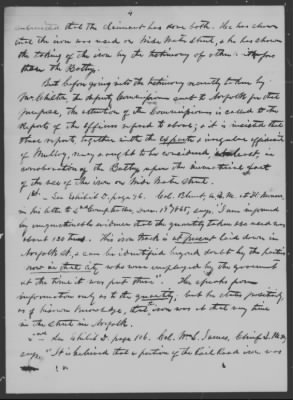 4
that the claimant has done both. He has shown
that the iron was used on Wide Water Street, & he has shown
the taking of the iron by the testimony of others
than the Battery.
But before going into the testimony recently taken by
Mr. Chilton the deputy Commissioner sent to Norfolk for that
purpose, the attention of the Commissioners is called to the
reports of the officers referred to above; & it is insisted that
these reports, together with the exparte, & irregular affidavit
of Mulloy, may & ought to be considered at least, in
corroboration of the Battery upon the main point
of the use of the iron on Wide Water Street.
1st. See Exhibit D. page 96. Col. Blunt, Q.M. at Ft. Monroe
in his letter to 2nd Comptroller, June 19th 1865, says, "I am informed
by unquestionable evidence that the quantity taken and used was
about 120 tons. This iron track is at present laid down in
Norfolk St., & can be identified beyond doubt by the parties
now in that City who were employed by the government
at the time it was put there." He speaks from
information only as to the quantity, but he states positively,
as of his own knowledge, that iron was at that very time
in the street in Norfolk.
2nd See Exhibit D. page 106. Col. Wm. L. James, Chief Q.M.
says "It is believed that a portion of the Rail Road iron was